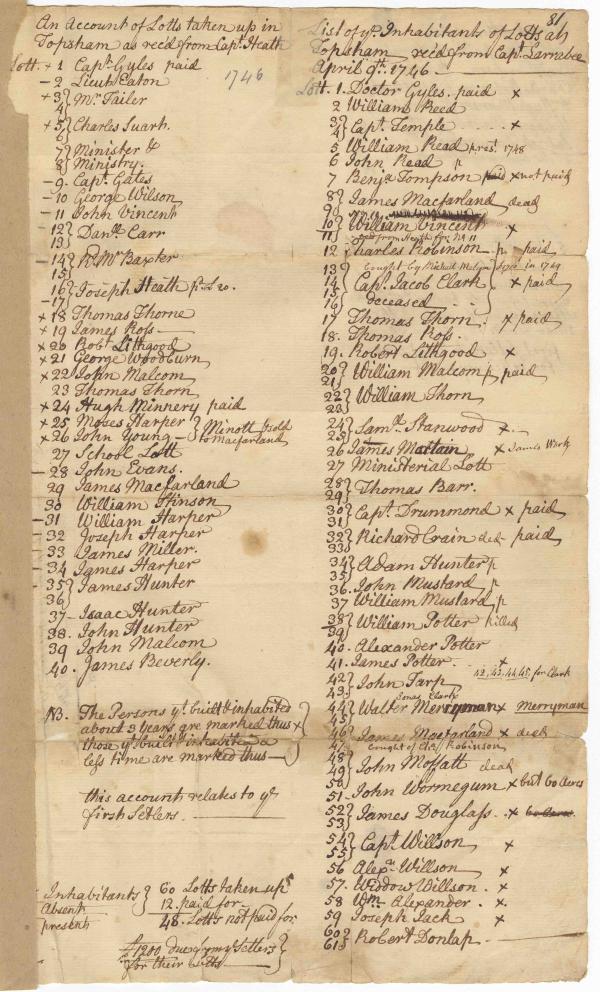 An Account of Lotts taken up in
Topsham as rec'd from Capt. Heath
1746
Lott. + 1 Capt. Gyles paid
- 2 Lieut. Eaton
+ 3 } Mr. Tailer
4
+ 5 } Charles Suarh.
6
7 } Minister &
8 } Ministry.
- 9. Capt. Gates
- 10 George Wilson
- 11 John Vincent
- 12 } Danll. Carr
13
- 14 } Mr. Baxter
15
16 } Joseph Heath
- 17
x 18 Thomas Thorne
x 19 James Ross
x 20 Robt. Lithgood
x 21 George Woodburn
x 22 John Malcom
23 Thomas Thorn
x 24 Hugh Minnery paid
x 25 Moses Harper } Minott sold
x 26 John Young - } to Macfarland
27 School Lott
- 28 John Evans.
29 James Macfarland
30 William Stinson
- 31 William Harper
- 32 Joseph Harper
- 33 James Miller.
- 34 James Harper
- 35 } James Hunter
36
37 - Isaac Hunter
38. John Hunter
39 John Malcom
40. James Beverly.
NB. The Persons yt. built & inhabited
about 3 Years are marked thus x
those yt. built & inhabited a
less time are marked thus -
this account relates to ye
first Setlers.
Inhabitants } 60 Lotts taken up
Absent 12. paid for
present 48. Lotts not paid for
£1200 due from ye Setlers
for their Lotts
81
List of ye. Inhabitants of Lotts at
Topsham rec'd from Capt. Larrabee
April 9th. 1746
Lott. 1. Doctor Gyles. paid x
2 William Reed
3 } Capt. Temple .... x
4
5 William Read p.res. 1748
6 John Read p
7 Benja. Tompson paid x not paid
8 } James Macfarland dead
9
10 } William Vincent x
11 rec'd from Heath for No 11
12 Charles Robinson p paid
bought by Michael Malcom since in 1749
13
14 } Capt. Jacob Clark x paid
15 deceased
16
17 Thomas Thorn. x paid
18. Thomas Ross.
19. Robert Lithgood x
20 } William Malcom p paid
21
22 } William Thorn
23
24 } Saml. Stanwood x
25
26 James Martain x James Work
27 Ministerial Lott
28 } Thomas Barr.
29
30 } Capt. Drummond x paid
31
32 } Richard Crain ded paid
33
34 } Adam Hunter p
35
36. John Mustard p
37 William Mustard p
38 } William Potter killed
39
40. Alexander Potter
41. James Potter .. x
42, 43, 44, 45, for Clark
42 } John Tarp
43
Jonas Clark
44 } Walter Merryman x merryman
45
46 } James Macfarland x ded
47 bought of Cha. Robinson
48 } John Moffatt dead
49
50 } John Wormegum x but 60 Acres
51
52 } James Douglass. x 60 Acres
53
54 } Capt. Willson x
55
56 Alexr. Willson x
57. Widdow Willson . x
58 Wm. Alexander . x
59 Joseph Jack x
60 } Robert Donlap
61